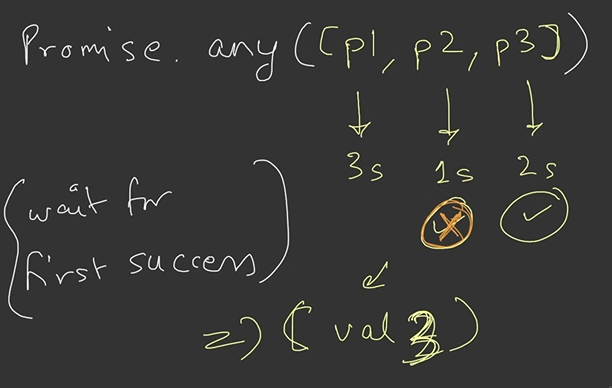 Promise. any([p1, p2, p3])
3s 1s 2s
(wait for
first success)
=> (val 3)